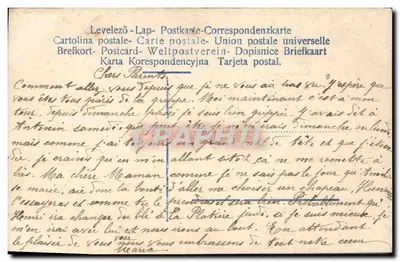 Levelező - Lap - Postkarte - Correspondenzkarte
Cartolina postale - Carte postale - Union postale universelle
Brefkort - Postcard - Weltpostverein - Dopisnice Briefkaart
Karta Korespondencyjna Tarjeta postal.
Chers Parents
Comment allez vous depuis que je ne vous ai J'espère que
vous êtes tous guéris de la grippe. Moi maintenant c'est à mon
tour, depuis dimanche je suis bien grippée. J'avais dit à
Antonin samedi que j'irais dimanche ou lundi
mais comme j'ai mal de tête et que j'étour
die, je crains que en m'en allant sitôt ça ne me remette à
bas. Ma chère Maman comme je ne sais pas le jour qu'
se marie, aie donc la bonté d'aller me choisir un chapeau,
l'essayeras et comme tu le prendras il sera bien Probablement que
Henri ira changer du blé à La Platière jeudi, si je suis mieux je
m'en irai avec lui et nous irons au bout. En attendant
le plaisir de vous voir nous vous embrassons de tout notre cœur
Maria
CPARPHIL